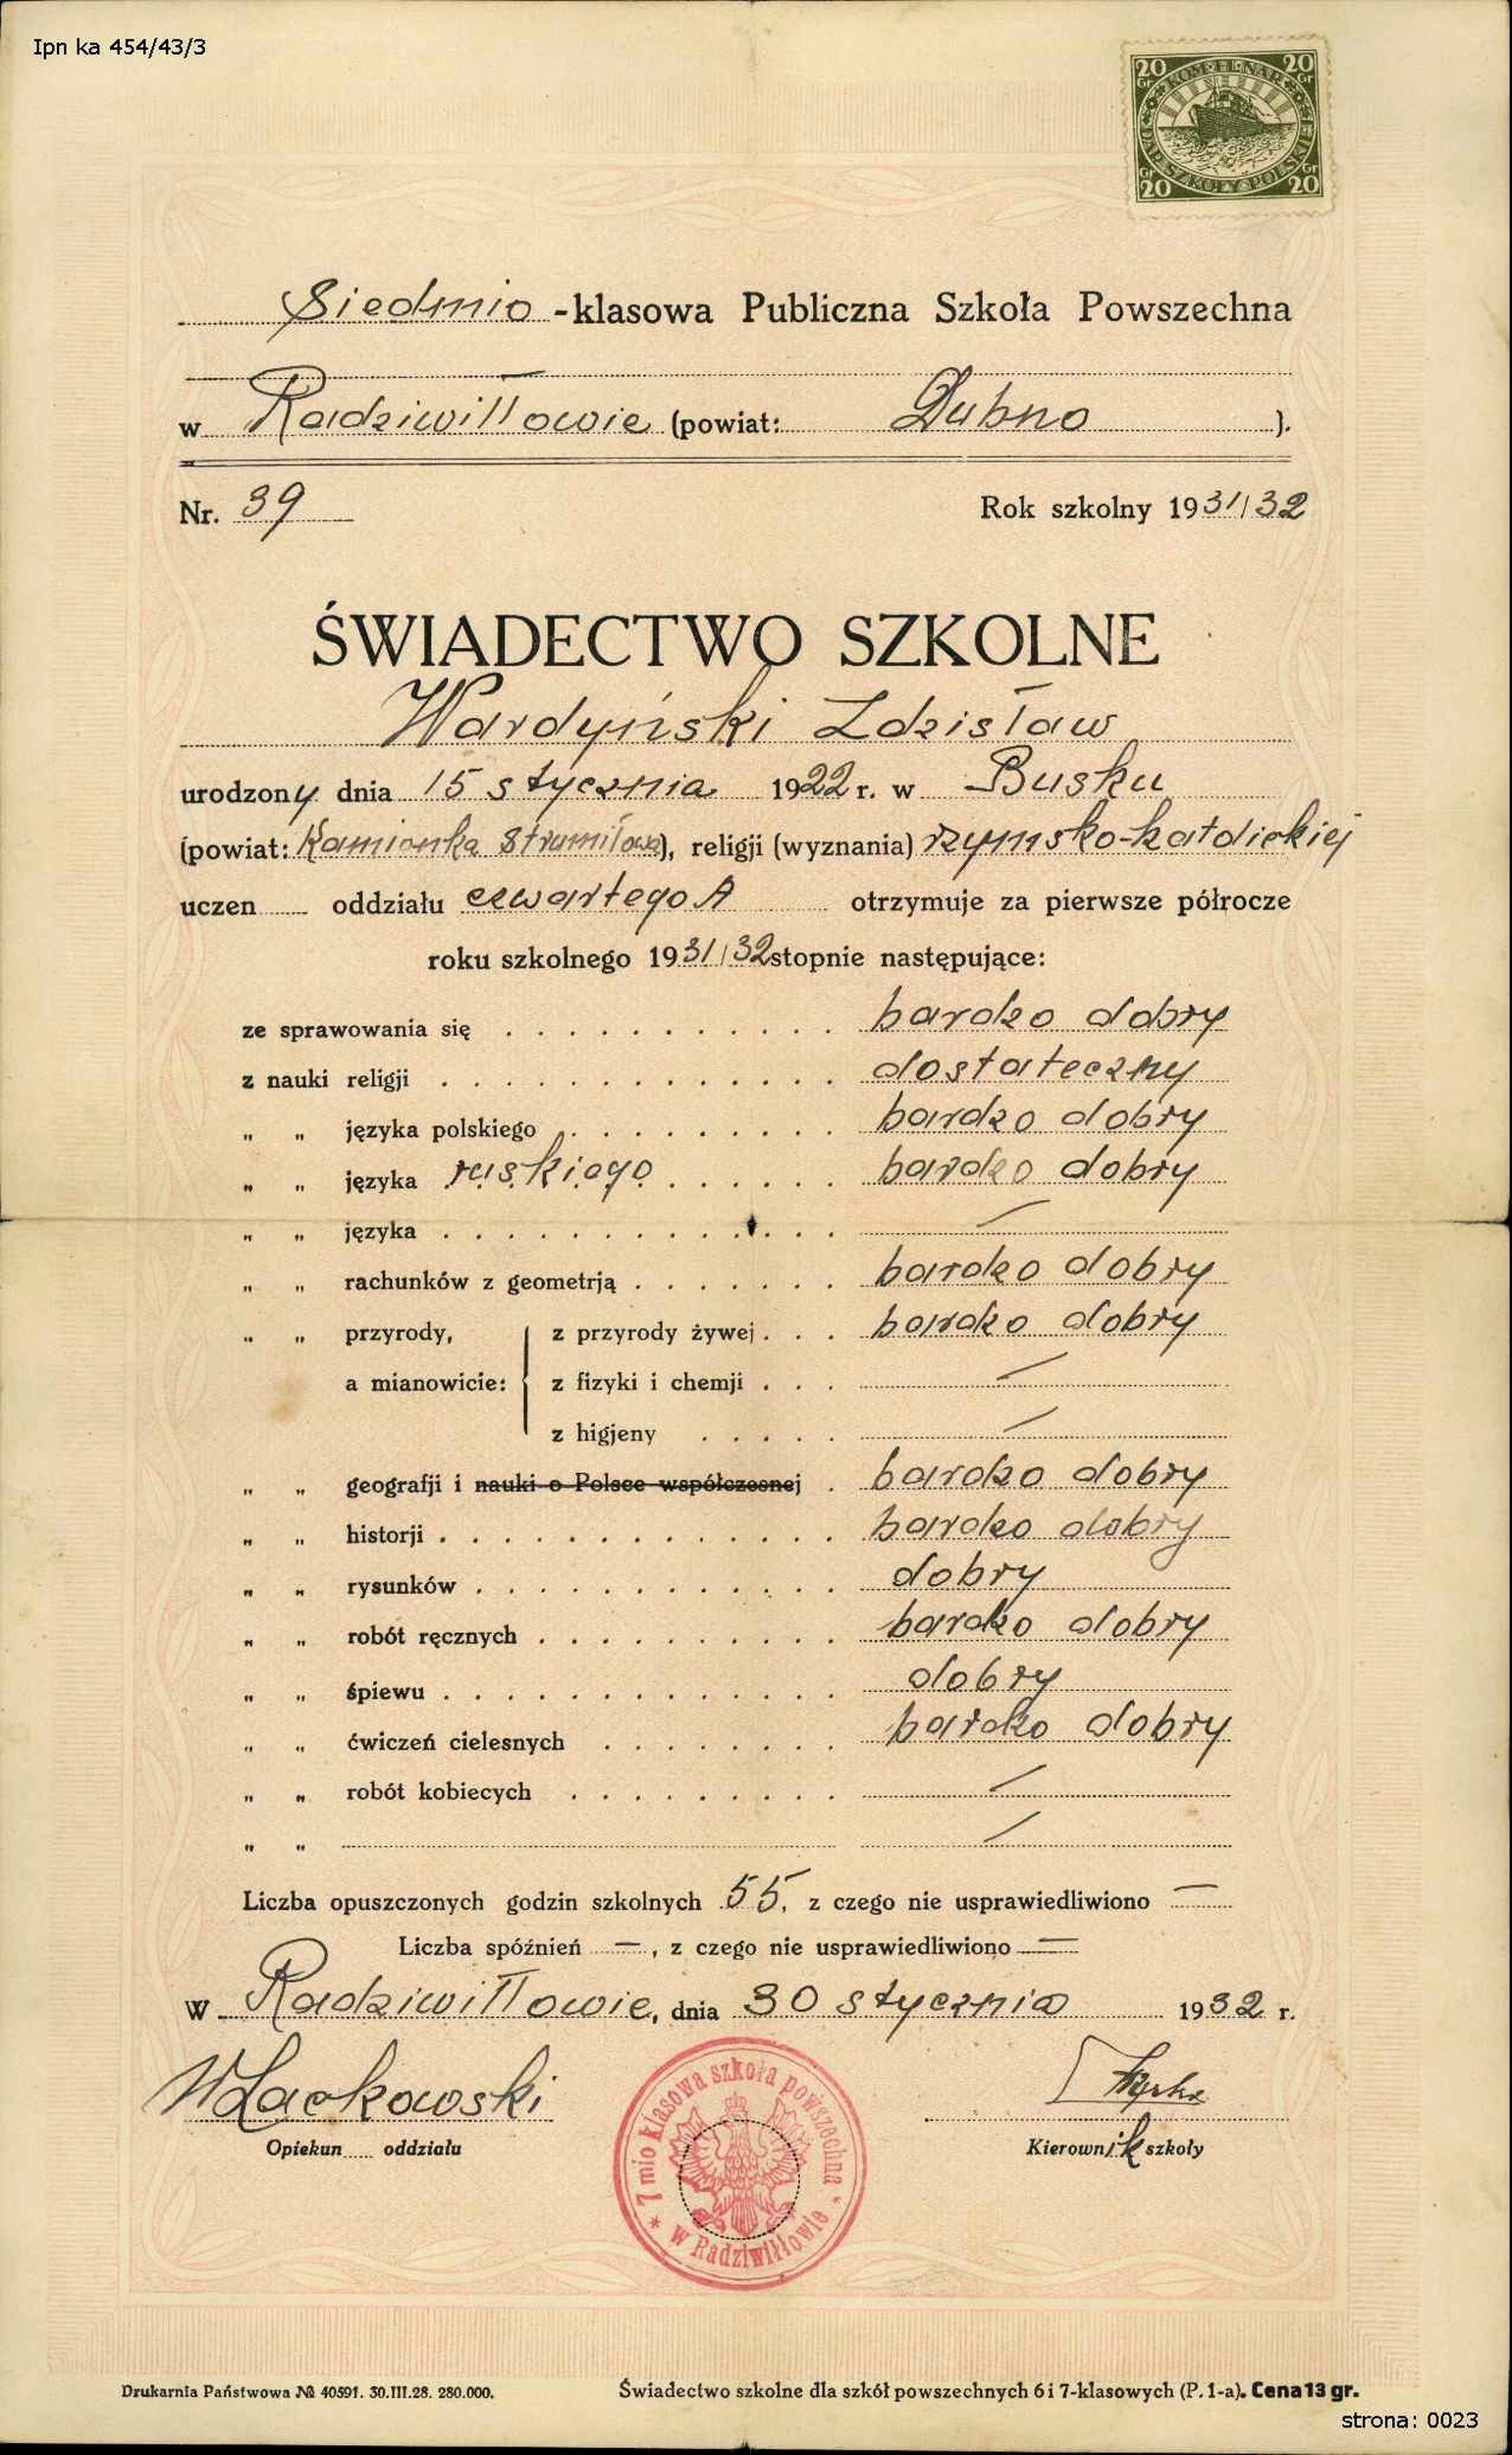 Ipn ka 454/43/3
20 Gr 20 Gr
Gr 20 Gr 20
Siedmio -klasowa Publiczna Szkoła Powszechna
w Radziwiłłowie (powiat: Dubno ).
Nr. 39 Rok szkolny 1931/32
ŚWIADECTWO SZKOLNE
Wardyński Zdzisław
urodzony dnia 15 stycznia 1922 r. w Busku
(powiat: Kamionka Strumiłowa), religji (wyznania) rzymsko-katolickiej
uczen oddziału czwartego A otrzymuje za pierwsze półrocze
roku szkolnego 1931/32 stopnie następujące:
ze sprawowania się . . . . . . . . . . . bardzo dobry
z nauki religji . . . . . . . . . . . . . dostateczny
„ „ języka polskiego . . . . . . . . . bardzo dobry
„ „ języka ruskiego . . . . . . bardzo dobry
„ „ języka . . . . . . . . . . . . . —
„ „ rachunków z geometrją . . . . . . . bardzo dobry
„ „ przyrody, z przyrody żywej . . . bardzo dobry
a mianowicie: z fizyki i chemji . . . —
z higjeny . . . . . —
„ „ geografji i nauki o Polsce współczesnej . bardzo dobry
„ „ historji . . . . . . . . . . . . . bardzo dobry
„ „ rysunków . . . . . . . . . . . . dobry
„ „ robót ręcznych . . . . . . . . . . bardzo dobry
„ „ śpiewu . . . . . . . . . . . . . dobry
„ „ ćwiczeń cielesnych . . . . . . . . bardzo dobry
„ „ robót kobiecych . . . . . . . . . —
„ „ —
Liczba opuszczonych godzin szkolnych 55, z czego nie usprawiedliwiono —
Liczba spóźnień —, z czego nie usprawiedliwiono —
W Radziwiłłowie, dnia 30 stycznia 1932 r.
WLackowski
Opiekun oddziału Kierownik szkoły
* 7 mio klasowa szkoła powszechna * w Radziwiłłowie
Drukarnia Państwowa № 40591. 30.III.28. 280.000. Świadectwo szkolne dla szkół powszechnych 6 i 7-klasowych (P. 1-a). Cena 13 gr.
strona: 0023